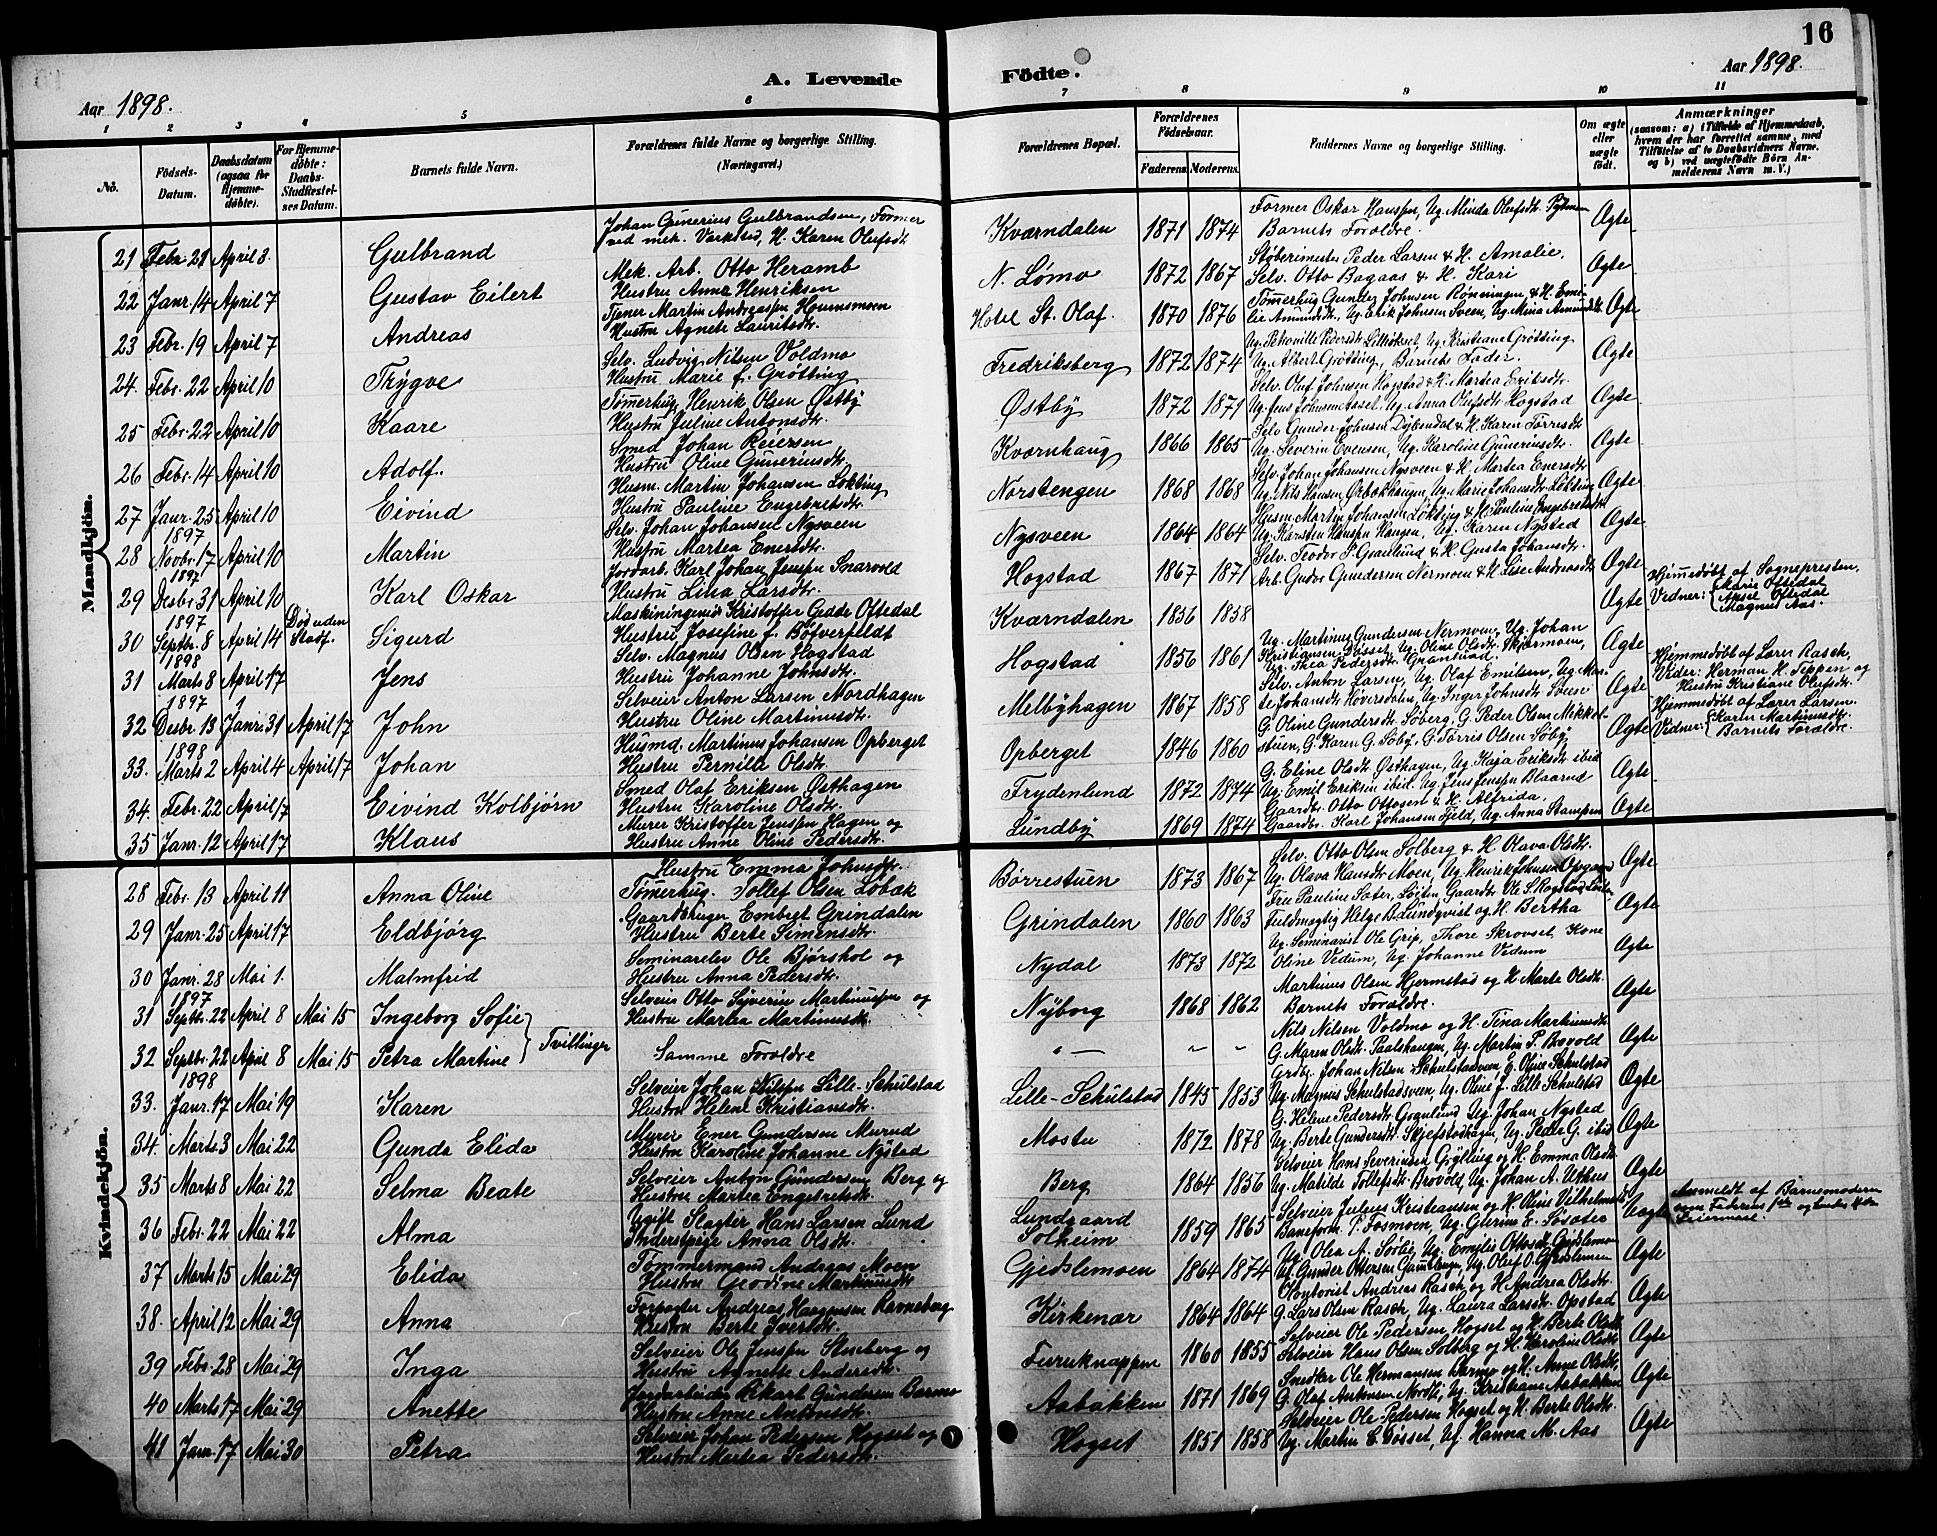 16
A. Levende Födte.
Aar 1898.
Aar 1898.
1 2 3 4 5 6 7 8 9 10 11
No.
Födsels-Datum.
Daabsdatum (ogsaa for Hjemmedöbte).
For Hjemmedöbte: Daabs-Stadfæstelses Datum.
Barnets fulde Navn.
Forældrenes fulde Navne og borgerlige Stilling. (Næringsvei.)
Forældrenes Bopæl.
Forældrenes Födselsaar.
Faderens. Moderens.
Faddernes Navne og borgerlige Stilling.
Om ægte eller uægte födt.
Anmærkninger
(saasom: a) i Tilfælde af Hjemmedaab, hvem der har forrettet samme, med Tilföielse af to Daabsvidners Navne, og b) ved uægtefödte Börn Anmelderens Navn m. V.)
Mandkjön.
21 Febr 21 April 3. Gulbrand Johan Gunerius Gulbrandsen, Former ved mek. Værksted, H. Karen Olufsdt. Kværndalen 1871 1874 Former Oskar Hanssen, Ug. Minda Olufsdt. Barnets Forældre. Ægte
22 Janr. 14 April 7 Gustav Eilert Mek. Arb. Otto Heramb Hustru Anna Henriksen N. Lømo 1872 1867 Støberimester Peder Larsen & H. Amalie, Selv. Otto Bagaas & H. Kari Ægte
23 Febr. 19 April 7 Andreas Tjener Martin Andreassen Hunnsmoen Hustru Agnete Lauritsdt. Hotel St. Olaf. 1870 1876 Tømmerhug Gunder Johnsen Rønningen, & H. Emilie Amundsdt, Ug. Erik Johnsen Sveen, Ug. Mina Amundsdt. Ægte
24. Febr. 22 April 10 Trygve Selv. Ludvig Nilsen Voldmo Hustru Marie f. Grøtting Fredriksberg 1872 1874 Ug. Petronille Pedersdt. Lilleøkset, Ug. Kristiane Grøtting Ug. Albert Grøtting, Barnets Fader. Ægte
25 Febr. 22 April 10 Kaare Tømmerhug Henrik Olsen Østby Hustru Juline Antonsdt. Østby 1872 1871 Selv. Oluf Johnsen Hogstad & H. Martea Eriksdt. Ug. Jens Johnsen Aaset, Ug. Anna Olufsdt. Hogstad Ægte
26 Febr. 14 April 10 Adolf. Smed Johan Reiersen Hustru Oline Guneriusdt. Kværnhaug 1866 1865 Selv. Gunder Johnsen Dybendal & H. Karen Torresdt Ug. Severin Evensen, Ug. Karoline Guneriusdt. Ægte
27 Janr. 25 April 10 Eivind Husm. Martin Johansen Løkting Hustru Pauline Engebretsdt. Norstengen 1868 1868 Selv. Johan Johansen Nysveen & H. Martea Enersdt Ug. Nils Hansen Ørbækhaugen, Ug. Marie Johansdt. Løkting Ægte
28 1897 Novbr. 17 April 10 Martin Selv. Johan Johansen Nysveen Hustru Martea Enersdt. Nysveen 1864 1864 Husm. Martin Johansen Løkting & H. Pauline Engebretsdt Ug. Karsten Hansen Haugen, Ug. Karen Nystad Ægte
29 1897 Desbr. 31 April 10 Karl Oskar Jordarb. Karl Johan Jenssen Snarvold Hustru Lina Larsdt. Hogstad 1867 1871 Selv. Teodor P. Granlund & H. Gusta Johansdt. Arb. Gudor Gundersen Nermoen & H. Lise Andreasdt. Ægte
30 1897 Septbr. 8 April 14 Død uden Stadf. Sigurd Maskiningeniør Kristoffer Gedde Oftedal Hustru Josefine f. Böfverfeldt Kværndalen 1856 1858 Ægte Hjemmedöbt af Sognepresten, Vidner: Marie Oftedal Aksel Oftedal Magnus Aas.
31 1898 Marts 8 April 17 Jens Selv. Magnus Olsen Hogstad Hustru Johanne Johnsdt. Hogstad 1856 1861 Ug. Martinus Gundersen Nermoen, Ug. Johan Kristiansen Dösset, Ug. Oline Olsdt. Skjærmoen, Ug. Thea Pedersdt. Granlund. Ægte
32 1897 Desbr. 13 Janr. 31 April 17 John Selveier Anton Larsen Nordhagen Hustru Oline Martinusdt. Melbyhagen 1867 1858 Selv. Anton Larsen, Ug. Olaf Emilsen, Ug. Marte Johansdt. Røversdalen, Ug. Inger Johnsdt. Sveen Ægte Hjemmedöbt af Lærer Rasch, Vidner: Herman H. Teppen og Hustru Kristiane Olufsdt.
33. 1898 Marts 2 April 4 April 17 Johan Husmd. Martinus Johansen Opberget Hustru Pernille Olsdt. Opberget 1846 1860 G. Oline Gundersdt. Søberg, G. Peder Olsen Mikkelstuen, G. Karen G. Søby, G. Torris Olsen Søby Ægte Hjemmedöbt af Lærer Larsen. Vidner: Karen Martinusdt. Barnets Forældre.
34. Febr. 22 April 17 Eivind Kolbjørn Smed Olaf Eriksen Østhagen Hustru Karoline Olsdt. Frydenlund 1872 1874 G. Eline Olsdt Østhagen, Ug. Kaja Eriksdt ibid Ug. Emil Eriksen ibid. Ug. Jens Jenssen Blaarud Ægte
35 Janr. 12 April 17 Klaus Murer Kristoffer Jenssen Hagen og Hustru Anne Oline Pedersdt. Lundby 1869 1874 Gaardbr. Otto Ottosen & H. Alfrida, Gaardbr. Karl Johansen Fjeld, Ug. Anna Stampen Ægte
Kvindekjön.
28 Febr. 13 April 11 Anna Oline Hustru Emma Johnsdt. Tømmerhug. Tollef Olsen Løbæk Børrestuen 1873 1867 Selv. Otto Olsen Solberg & H. Olava Olsdt. Ug. Olava Hansdt Moen, Ug. Henrik Johnsen Opgaard Ægte
29 Janr. 25 April 17 Eldbjørg Gaardbruger Embret Grindalen Hustru Berte Simensdt. Grindalen 1860 1863 Fru Pauline Sæter, Løiten, Gaardbr. Ole S. Rogstad Løiten Fuldmægtig Helge B. Lundqvist og H. Bertha Ægte
30 Janr. 28 Mai 1. Malmfrid Seminarelev Ole Bjørshol og Hustru Anna Pedersdt. Nydal 1873 1872 Ug. Seminarist Ole Grip, Thore Skrovset, Kone Oline Vedum, Ug. Johanne Vedum Ægte
31 1897 Septbr. 22 April 8 Mai 15 Ingeborg Sofie Selveier Otto Syverin Martinussen og Hustru Martea Martinusdt. Nyborg 1868 1862 Martinus Olsen Hjermstad og H. Marte Olsdt. Barnets Forældre. Ægte
32 Septbr. 22 April 8 Mai 15 Petra Martine Tvillinger Samme Forældre " — " " Nils Nilsen Voldmo og H. Tina Martinusdt G. Maren Olsdt. Paalshaugen, Ug. Martin P. Brovold Ægte
33. 1898 Janr. 17 Mai 19 Karen Selveier Johan Nilssen Lille-Schulstad Hustru Helene Kristiansdt. Lille-Schulstad 1845 1853 Grdbr. Johan Nilsen Schulstadsveen, E. Oline Schulstad Ug. Magnus Schulstadsveen, Ug. Oline J. Lille Schulstad Ægte
34. Marts 3 Mai 22 Gunda Elida Murer Ener Gundersen Murud Hustru Karoline Johanne Nystad Mostu 1872 1878 G. Helene Pedersdt. Granlund, Ug. Johan Nysted Ug. Berte Gundersdt. Skjefstadhagen, Ug. Peder G. ibid Ægte
35 Marts 8 Mai 22 Selma Beate Selveier Anton Gundersen Berg og Hustru Martea Engebretsdt. Berg 1864 1856 Selveier Hans Severinsen Grylling og H. Emma Olsdt. Ug. Matilde Tollefsdt. Brovold, Ug. Johan A. Uthus Ægte
36 Febr. 22 Mai 22 Alma Ugift Slagter Hans Larsen Lund Inderstpige Anna Olsdt. Lundgaard Solheim 1859 1865 Selveier Julius Kristiansen og H. Oline Vilhelmsdt Baneform. P. Fosmoen, Ug. Glerine E. Søsæter Uægte Anmeldt af Barnemoderen
37 Marts 15 Mai 29 Elida Tømmermand Andreas Moen Hustru Geodine Martinusdt Gjedslemoen 1864 1874 Ug. Olea A. Sørlie, Ug. Emilie Ottosdt. Gjedslemoen Ug. Gunder Ottersen Gamlhagen, Ug. Oluf O. Gjedslemoen Ægte
38. April 12 Mai 29 Anna Forpagter Andreas Haagensen Ravneberg Hustru Berte Iversdt. Kirkenær 1864 1864 Kontorist Andreas Rasch og H. Andrea Olsdt. G. Lars Olsen Rasch, Ug. Laura Larsdt. Opstad Ægte
39 Febr. 28 Mai 29 Inga Selveier Ole Jenssen Stueberg og Hustru Agnette Andersdt. Furuknappen 1860 1855 Selveier Ole Pedersen Hogset og H. Berte Olsdt Selveier Hans Olsen Solberg og H. Karoline Olsdt Ægte
40 Marts 17 Mai 29 Anette Jordarbeider Rikart Gundersen Barmo Hustru Anne Antonsdt. Aabakken 1871 1869 Snedker Ole Hermansen Barmo og H. Anne Olsdt. G. Olaf Antonsen Nordli, Ug. Kristiane Aabakken Ægte
41 Janr. 17 Mai 30 Petra Selveier Johan Pedersen Hogset og Hustru Martea Pedersdt. Hogset 1851 1858 Selveier Ole Pedersen Hogset og H. Berte Olsdt. Ug. Martin C. Dösset, Ug. Hanna M. Aas Ægte